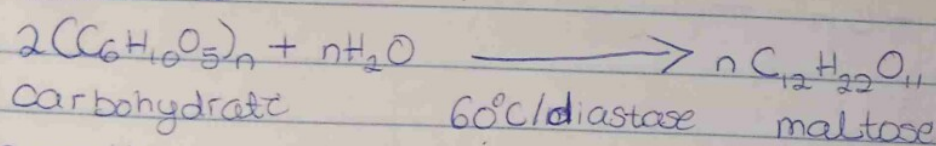 2(C₆H₁₀O₅)ₙ + nH₂O ⟶ n C₁₂H₂₂O₁₁
carbohydrate 60°C/diastase maltose